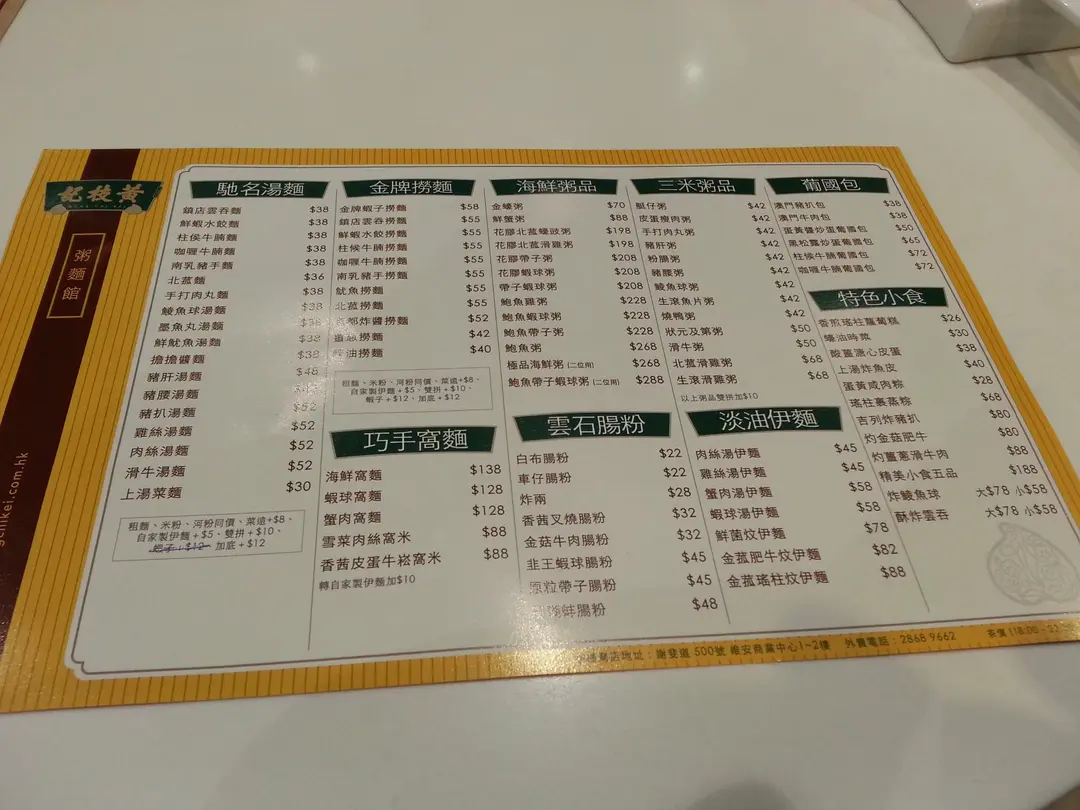 黃枝記
粥麵館
gchikei.com.hk
馳名湯麵
鎮店雲吞麵 $38
鮮蝦水餃麵 $38
柱侯牛腩麵 $38
咖喱牛腩麵 $38
南乳豬手麵 $38
北菰麵 $36
手打肉丸麵 $38
鯪魚球湯麵 $38
墨魚丸湯麵 $38
鮮魷魚湯麵 $38
擔擔醬麵 $38
豬肝湯麵 $48
豬腰湯麵
豬扒湯麵 $52
雞絲湯麵 $52
肉絲湯麵 $52
滑牛湯麵 $52
上湯菜麵 $30
粗麵、米粉、河粉同價、菜遠+$8、
自家製伊麵+$5、雙拼+$10、
蝦子+$12、加底+$12
金牌撈麵
金牌蝦子撈麵 $58
鎮店雲吞撈麵 $55
鮮蝦水餃撈麵 $55
柱候牛腩撈麵 $55
咖喱牛腩撈麵 $55
南乳豬手撈麵 $55
魷魚撈麵 $55
北菰撈麵 $55
京都炸醬撈麵 $52
薑葱撈麵 $42
蠔油撈麵 $40
粗麵、米粉、河粉同價、菜遠+$8、
自家製伊麵+$5、雙拼+$10、
蝦子+$12、加底+$12
巧手窩麵
海鮮窩麵 $138
蝦球窩麵 $128
蟹肉窩麵 $128
雪菜肉絲窩米 $88
香茜皮蛋牛崧窩米 $88
轉自家製伊麵加$10
海鮮粥品
金蠔粥 $70
鮮蟹粥 $88
花膠北菰蠔豉粥 $198
花膠北菰滑雞粥 $198
花膠帶子粥 $208
花膠蝦球粥 $208
帶子蝦球粥 $208
鮑魚雞粥 $228
鮑魚蝦球粥 $228
鮑魚帶子粥 $228
鮑魚粥 $268
極品海鮮粥(二位用) $268
鮑魚帶子蝦球粥(二位用) $288
雲石腸粉
白布腸粉 $22
車仔腸粉 $22
炸兩 $28
香茜叉燒腸粉 $32
金菇牛肉腸粉 $32
韭王蝦球腸粉 $45
原粒帶子腸粉 $45
蚌腸粉 $48
三米粥品
艇仔粥 $42
皮蛋瘦肉粥 $42
手打肉丸粥 $42
豬肝粥 $42
粉腸粥 $42
豬腰粥 $42
鯪魚球粥 $42
生滾魚片粥 $42
燒鴨粥 $42
狀元及第粥 $50
滑牛粥 $50
北菰滑雞粥 $68
生滾滑雞粥 $68
以上粥品雙拼加$10
淡油伊麵
肉絲湯伊麵 $45
雞絲湯伊麵 $45
蟹肉湯伊麵 $58
蝦球湯伊麵 $58
鮮菌炆伊麵 $78
金菰肥牛炆伊麵 $82
金菰瑤柱炆伊麵 $88
葡國包
澳門豬扒包 $38
澳門牛肉包 $38
蛋黃醬炒蛋葡國包 $50
黑松露炒蛋葡國包 $65
柱候牛腩葡國包 $72
咖喱牛腩葡國包 $72
特色小食
香煎瑤柱蘿蔔糕 $26
蠔油時菜 $30
酸薑溏心皮蛋 $38
上湯炸魚皮 $40
蛋黃咸肉粽 $28
瑤柱裹蒸粽 $68
吉列炸豬扒 $80
灼金菇肥牛 $80
灼薑蔥滑牛肉 $88
精美小食五品 $188
炸鯪魚球 大$78 小$58
酥炸雲吞 大$78 小$58
店地址：謝斐道 500號 維安商業中心1~2樓 外賣電話：2868 9662 茶價 (18:00